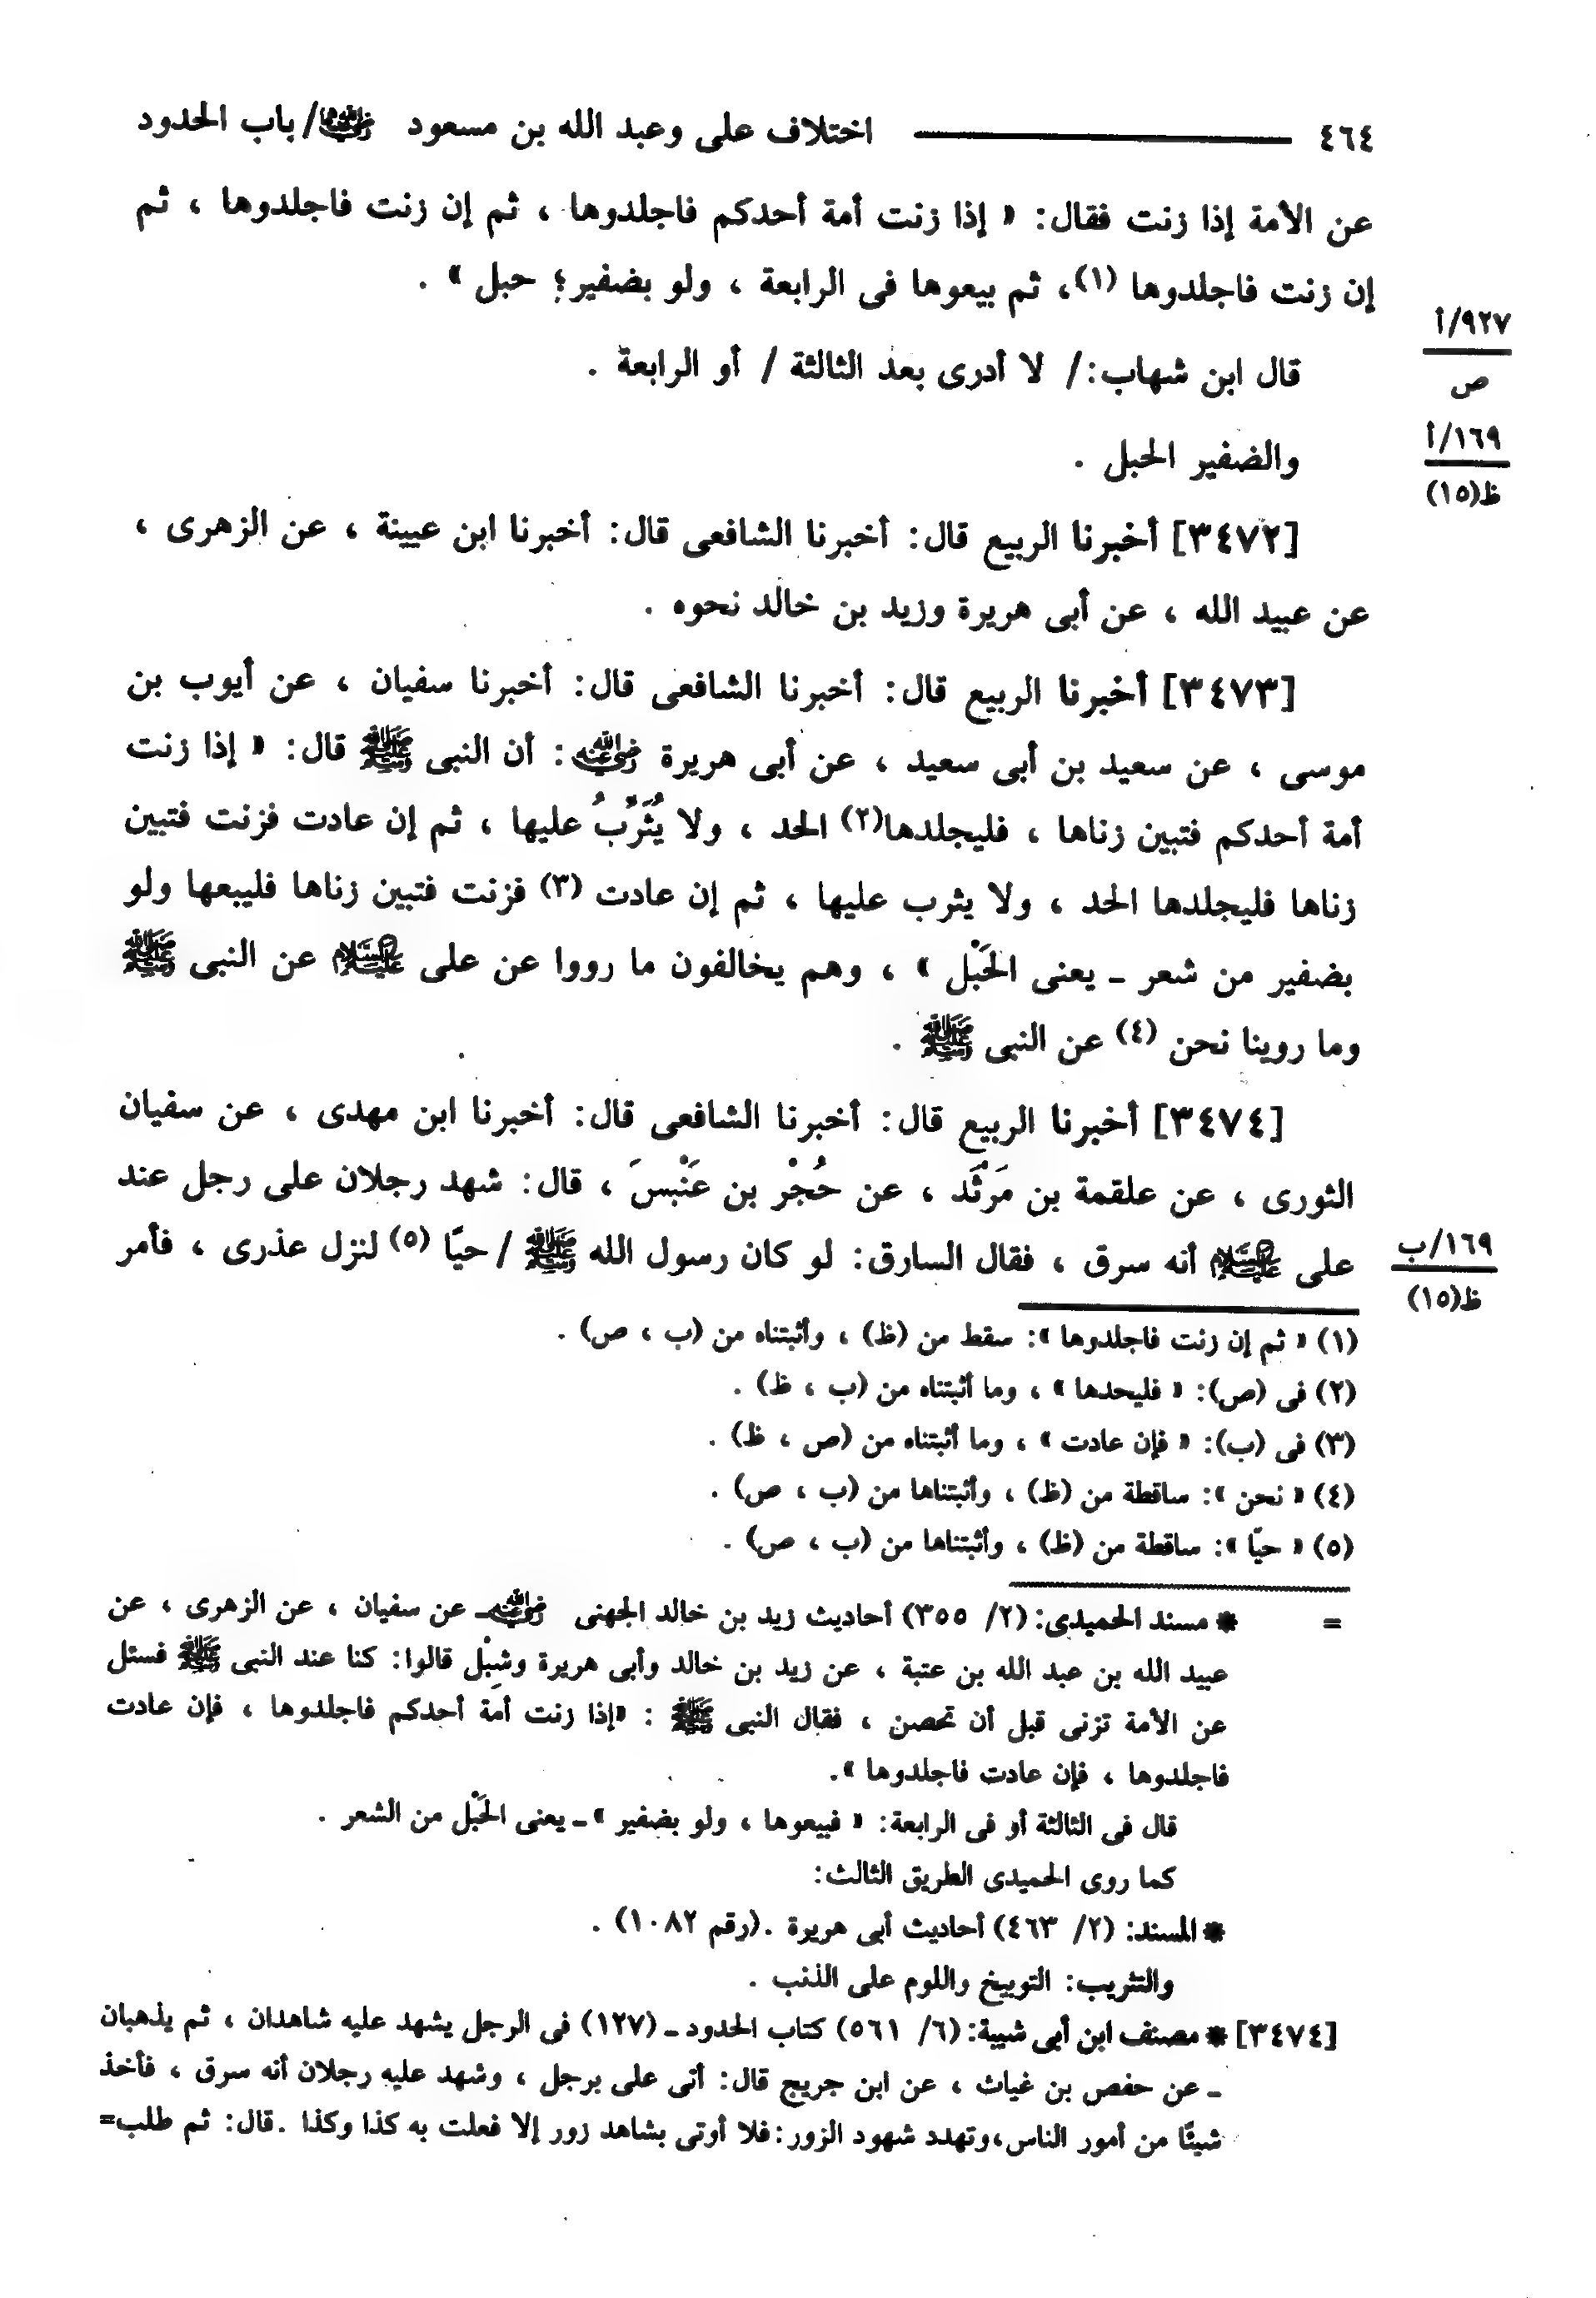 ٤٦٤ ــــــــ اختلاف على وعبد الله بن مسعود رضي الله عنهما / باب الحدود
عن الأمة إذا زنت فقال: « إذا زنت أمة أحدكم فاجلدوها ، ثم إن زنت فاجلدوها ، ثم
إن زنت فاجلدوها (١)، ثم بيعوها فى الرابعة ، ولو بضفير؛ حبل » .
٩٢٧/أ
ص
قال ابن شهاب:/ لا أدرى بعد الثالثة / أو الرابعة .
١٦٩/أ
ظ(١٥)
والضفير الحبل .
[٣٤٧٢] أخبرنا الربيع قال: أخبرنا الشافعى قال: أخبرنا ابن عيينة ، عن الزهرى ،
عن عبيد الله ، عن أبى هريرة وزيد بن خالد نحوه .
[٣٤٧٣] أخبرنا الربيع قال: أخبرنا الشافعى قال: أخبرنا سفيان ، عن أيوب بن
موسى ، عن سعيد بن أبى سعيد ، عن أبى هريرة رضي الله عنه : أن النبى ﷺ قال: « إذا زنت
أمة أحدكم فتبين زناها ، فليجلدها(٢) الحد ، ولا يُثَرِّبُ عليها ، ثم إن عادت فزنت فتبين
زناها فليجلدها الحد ، ولا يثرب عليها ، ثم إن عادت (٣) فزنت فتبين زناها فليبعها ولو
بضفير من شعر ـ يعنى الحَبْل » ، وهم يخالفون ما رووا عن على عليه السلام عن النبى ﷺ
وما روينا نحن (٤) عن النبى ﷺ .
[٣٤٧٤] أخبرنا الربيع قال: أخبرنا الشافعى قال: أخبرنا ابن مهدى ، عن سفيان
الثورى ، عن علقمة بن مَرْثَد ، عن حُجْر بن عَنْبسَ ، قال: شهد رجلان على رجل عند
على عليه السلام أنه سرق ، فقال السارق: لو كان رسول الله ﷺ / حيّا (٥) لنزل عذرى ، فأمر
١٦٩/ب
ظ(١٥)
(١) « ثم إن زنت فاجلدوها »: سقط من (ظ) ، وأثبتناه من (ب ، ص) .
(٢) فى (ص): « فليحدها » ، وما أثبتناه من (ب ، ظ) .
(٣) فى (ب): « فإن عادت » ، وما أثبتناه من (ص ، ظ) .
(٤) « نحن »: ساقطة من (ظ) ، وأثبتناها من (ب ، ص) .
(٥) « حيّا »: ساقطة من (ظ) ، وأثبتناها من (ب ، ص) .
= * مسند الحميدى: (٢/ ٣٥٥) أحاديث زيد بن خالد الجهنى رضي الله عنه ـ عن سفيان ، عن الزهرى ، عن
عبيد الله بن عبد الله بن عتبة ، عن زيد بن خالد وأبى هريرة وشِبْل قالوا: كنا عند النبى ﷺ فسئل
عن الأمة تزنى قبل أن تحصن ، فقال النبى ﷺ : «إذا زنت أمة أحدكم فاجلدوها ، فإن عادت
فاجلدوها ، فإن عادت فاجلدوها ».
قال فى الثالثة أو فى الرابعة: « فبيعوها ، ولو بضفير »ـ يعنى الحَبْل من الشعر .
كما روى الحميدى الطريق الثالث:
* المسند: (٢/ ٤٦٣) أحاديث أبى هريرة .(رقم ١٠٨٢) .
والتثريب: التوبيخ واللوم على الذنب .
[٣٤٧٤] * مصنف ابن أبى شيبة: (٦/ ٥٦١) كتاب الحدود ـ (١٢٧) فى الرجل يشهد عليه شاهدان ، ثم يذهبان
ـ عن حفص بن غياث ، عن ابن جريج قال: أتى على برجل ، وشهد عليه رجلان أنه سرق ، فأخذ
شيئًا من أمور الناس،وتهدد شهود الزور:فلا أوتى بشاهد زور إلا فعلت به كذا وكذا .قال: ثم طلب=